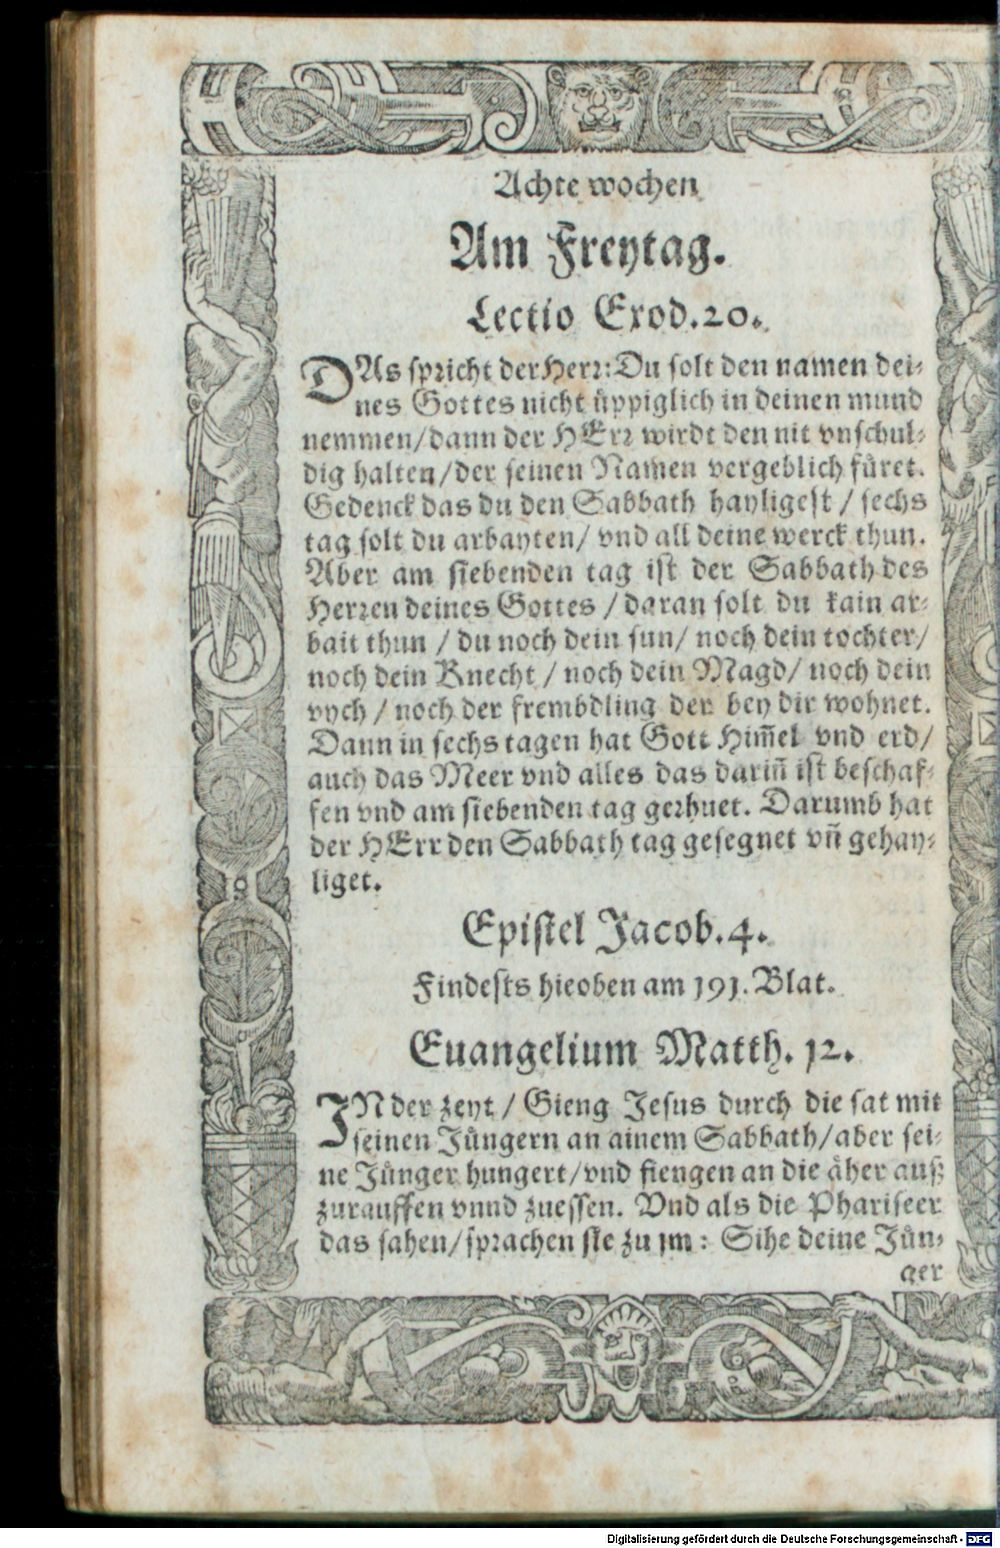 Achte wochen
Am Freytag.
Lectio Exod.20.
DAs spricht der Herr: Du solt den namen dei-
nes Gottes nicht üppiglich in deinen mund
nemmen/dann der HErr wirdt den nit vnschul-
dig halten/der seinen Namen vergeblich fůret.
Gedenck das du den Sabbath hayligest / sechs
tag solt du arbayten/ vnd all deine werck thun.
Aber am siebenden tag ist der Sabbath des
Herren deines Gottes / daran solt du kain ar-
bait thun / du noch dein sun/ noch dein tochter/
noch dein Knecht / noch dein Magd/ noch dein
vych / noch der frembdling der bey dir wohnet.
Dann in sechs tagen hat Gott Him̃el vnd erd/
auch das Meer vnd alles das dariñ ist beschaf-
fen vnd am siebenden tag gerhuet. Darumb hat
der HErr den Sabbath tag gesegnet vñ gehay-
liget.
Epistel Jacob.4.
Findests hieoben am 191. Blat.
Euangelium Matth. 12.
IN der zeyt / Gieng Jesus durch die sat mit
seinen Jůngern an ainem Sabbath/aber sei-
ne Jůnger hungert/vnd fiengen an die äher auß
zurauffen vnnd zuessen. Vnd als die Phariseer
das sahen/sprachen sie zu jm: Sihe deine Jůn-
ger
Digitalisierung gefördert durch die Deutsche Forschungsgemeinschaft - DFG